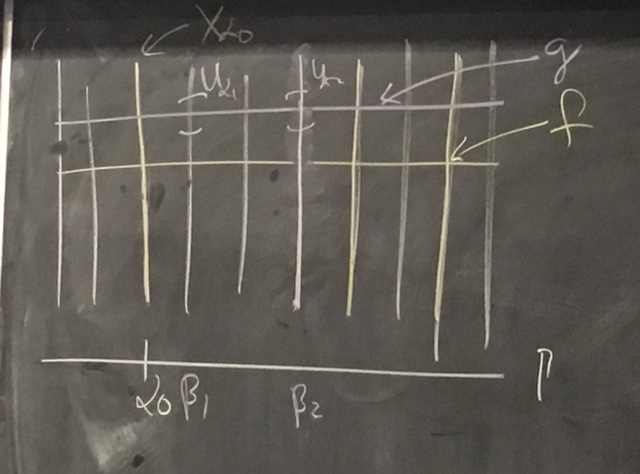 X_{α_0}
U_{α_1} U_{α_2} g
f
α_0 β_1 β_2 Γ